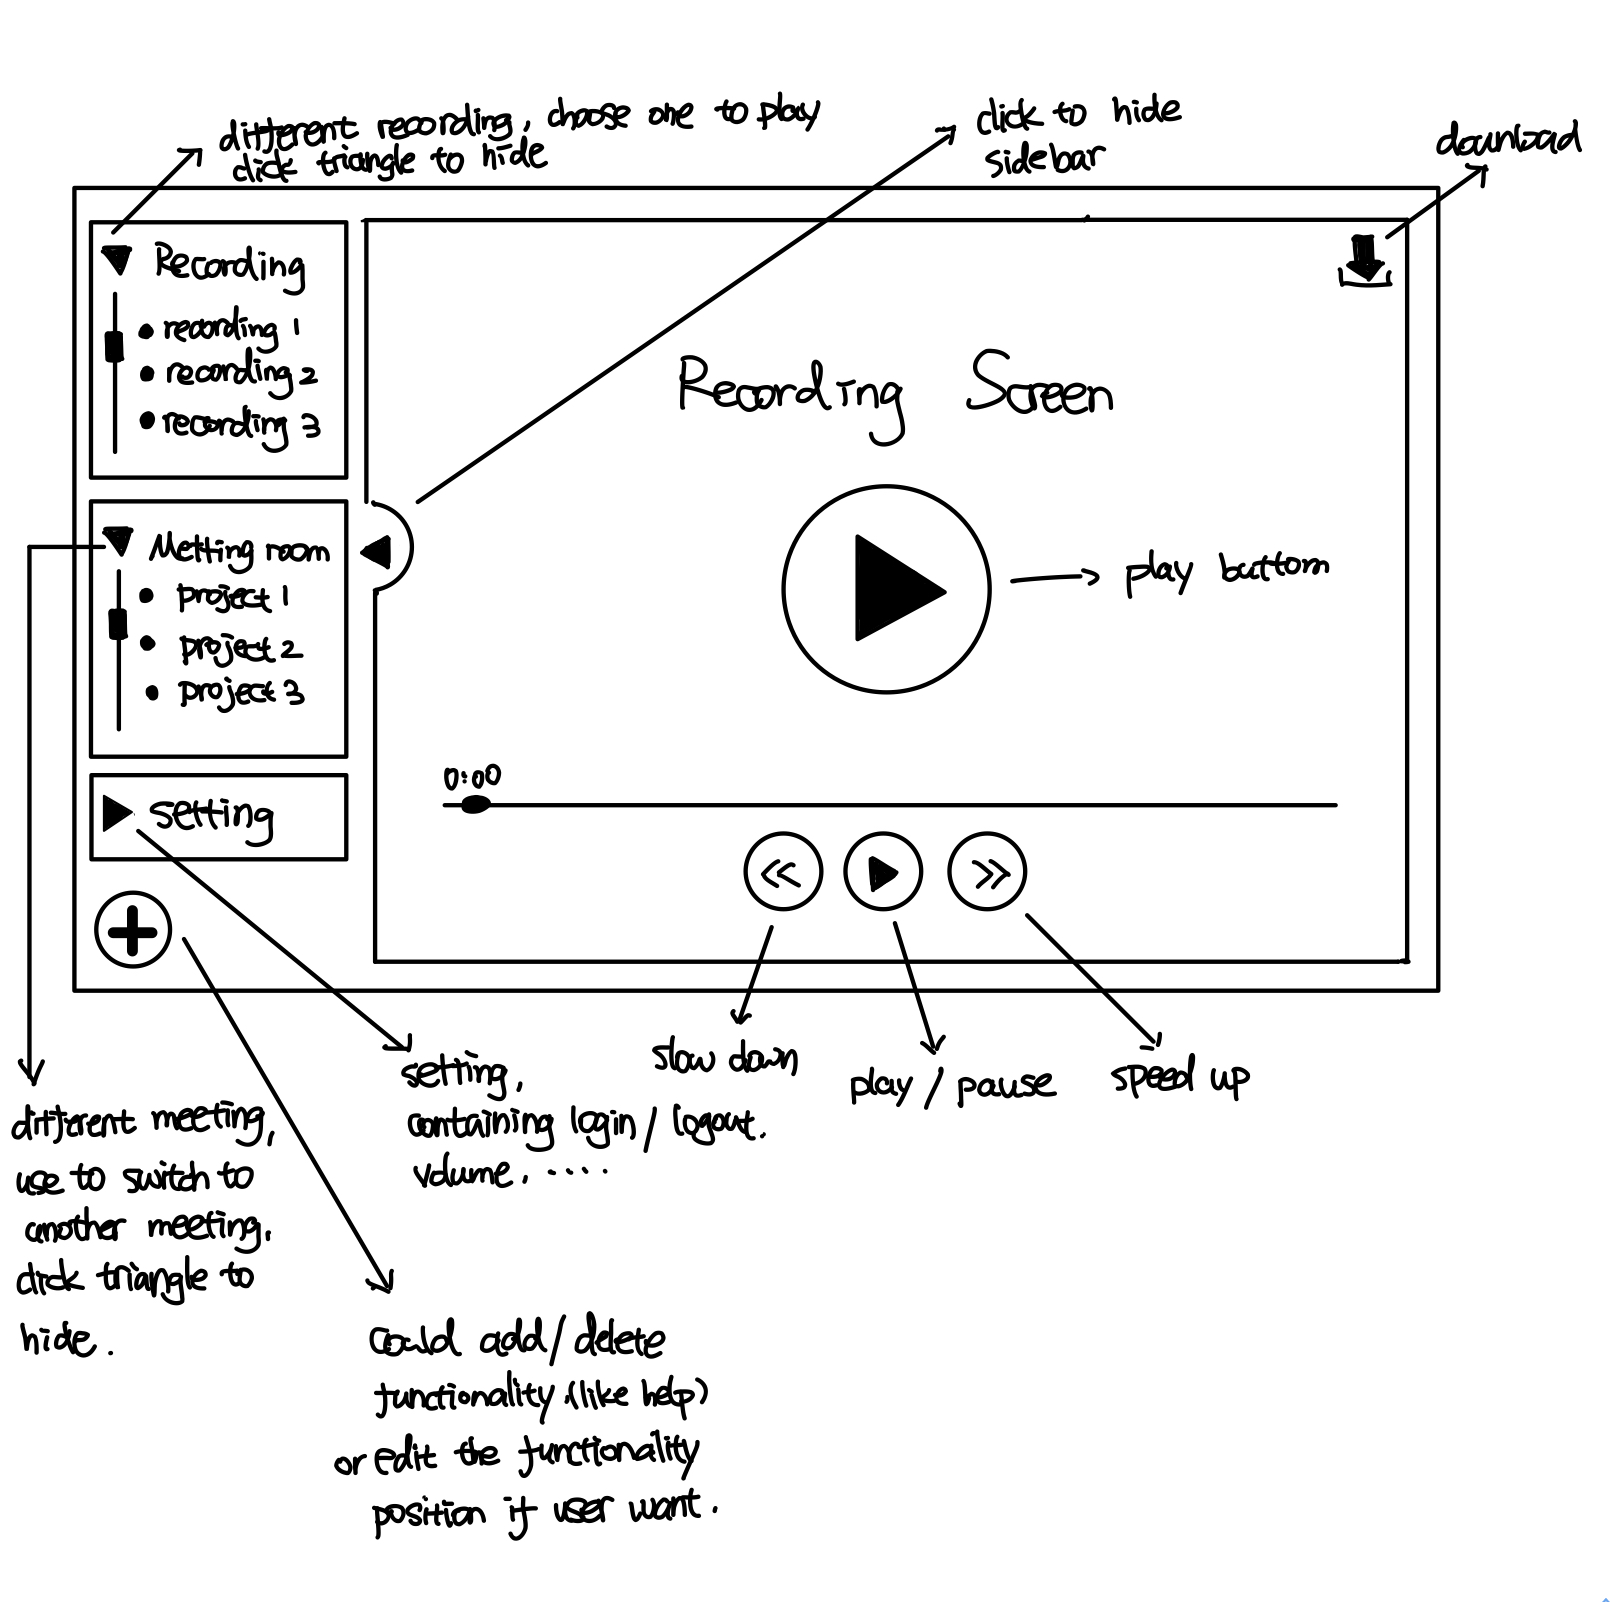 different recording, choose one to play
click triangle to hide
click to hide
sidebar
download
Recording
recording 1
recording 2
recording 3
Recording Screen
Metting room
project 1
project 2
project 3
play buttom
0:00
setting
slow down
play / pause
speed up
setting,
containing login / logout.
volume. ....
different meeting,
use to switch to
another meeting.
click triangle to
hide.
Could add/delete
functionality.(like help)
or edit the functionality
position if user want.